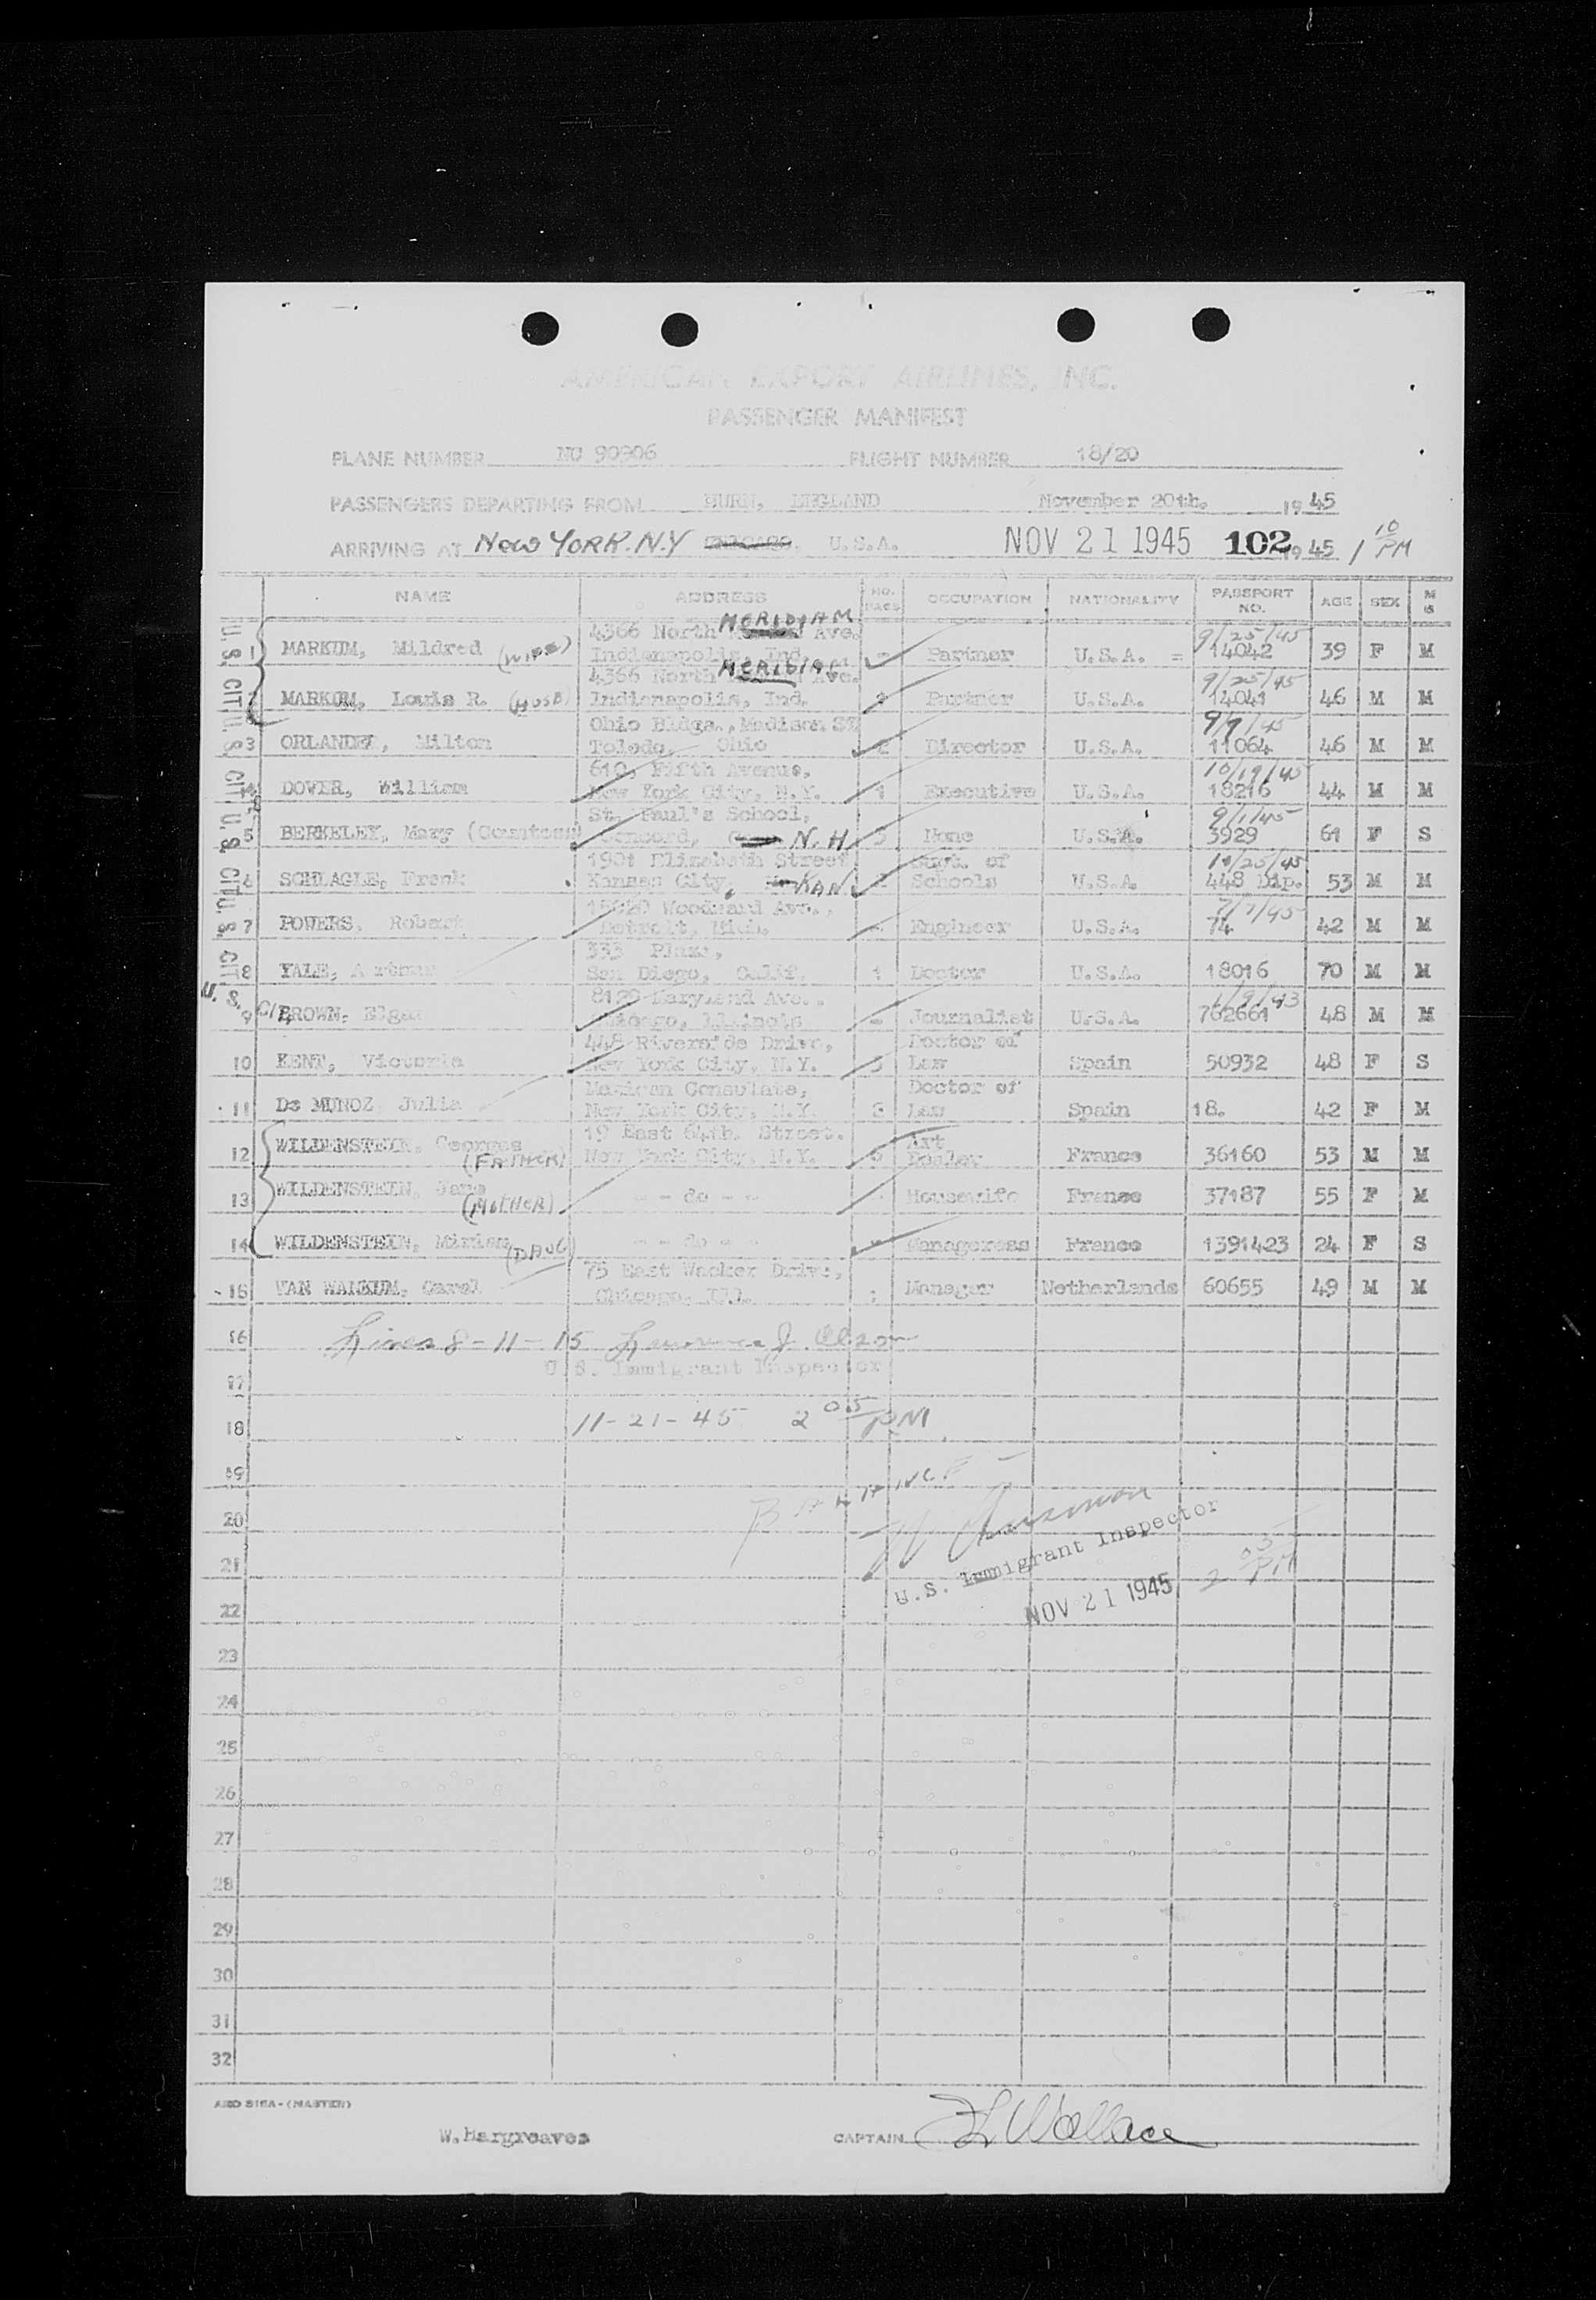 AMERICAN EXPORT AIRLINES, INC.
PASSENGER MANIFEST
PLANE NUMBER NC 90906 FLIGHT NUMBER 18/20
PASSENGERS DEPARTING FROM HURN, ENGLAND November 20th. 1945
ARRIVING AT New YORK. N.Y U.S.A. NOV 21 1945 102 1945 1 10 PM
NAME ADDRESS NO. PACS OCCUPATION NATIONALITY PASSPORT NO. AGE SEX M S
4366 North MERIDIAM Ave. 9/25/45
U.S. CIT 1 MARKUM, Mildred (WIFE) Indianapolis, Ind. - Partner U.S.A. 14042 39 F M
4366 North MERIDIAM Ave. 9/25/45
2 MARKUM, Louis R. (HUSB) Indianapolis, Ind. Partner U.S.A. 14041 46 M M
Ohio Bldgs., Madison St 9/9/45
U.S. CIT 3 ORLANDER, Milton Toledo, Ohio 2 Director U.S.A. 11064 46 M M
610, Fifth Avenue, 10/19/45
4 DOVER, William New York City, N.Y. 1 Executive U.S.A. 18216 44 M M
St. Paul's School, 9/1/45
U.S. CIT 5 BERKELEY, Mary (Countess) Concord, N.H 5 None U.S.A. 3929 61 F S
1901 Elizabeth Street Supt. of 10/25/45
6 SCHLAGLE, Frank Kansas City, KAN 2 Schools U.S.A. 448 Dip. 53 M M
Woodward Ave., 7/7/45
U.S. CIT 7 POWERS, Robert Detroit, Mich. - Engineer U.S.A. 74 42 M M
333 Plaza,
8 YALE, Arthur San Diego, Calif. 1 Doctor U.S.A. 18016 70 M M
8120 Maryland Ave., 1/9/43
U.S. CIT 9 BROWN, Edgar Chicago, Illinois - Journalist U.S.A. 762661 48 M M
448 Riverside Drive, Doctor of
10 KENT, Victoria New York City, N.Y. 3 Law Spain 50932 48 F S
Mexican Consulate, Doctor of
11 De MUNOZ, Julia New York City, N.Y. 3 Law Spain 18. 42 F M
19 East 64th. Street. Art
12 WILDENSTEIN, Georges (FATHER) New York City, N.Y. 6 Dealer France 36160 53 M M
13 WILDENSTEIN, Jane (MOTHER) - - do - - Housewife France 37187 55 F M
14 WILDENSTEIN, Miriam (DAUG) - - do - - Manageress France 1391423 24 F S
75 East Wacker Drive,
15 VAN WALKUM, Carel Chicago, Ill. Manager Netherlands 60655 49 M M
16 Lines 8-11-15
17 U.S. Immigrant Inspector
18 11-21-45 2 05 PM
19 BALANCE
20
21 U.S. Immigrant Inspector 2 05 PM
22 NOV 21 1945
23
24
25
26
27
28
29
30
31
32
W.Hargreaves CAPTAIN L Wallace